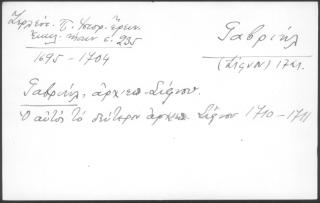 Ζερλέντ. Π. Ἱστορ. Ἔρευν.
Ἐκκλ. νήσων σ. 235
1695 - 1704
Γαβριήλ
(Σίφνου) 1711.
Γαβριήλ, ἀρχιεπ. Σίφνου.
Ὁ αὐτὸς τὸ δεύτερον ἀρχιεπ. Σίφνου 1710 - 1711